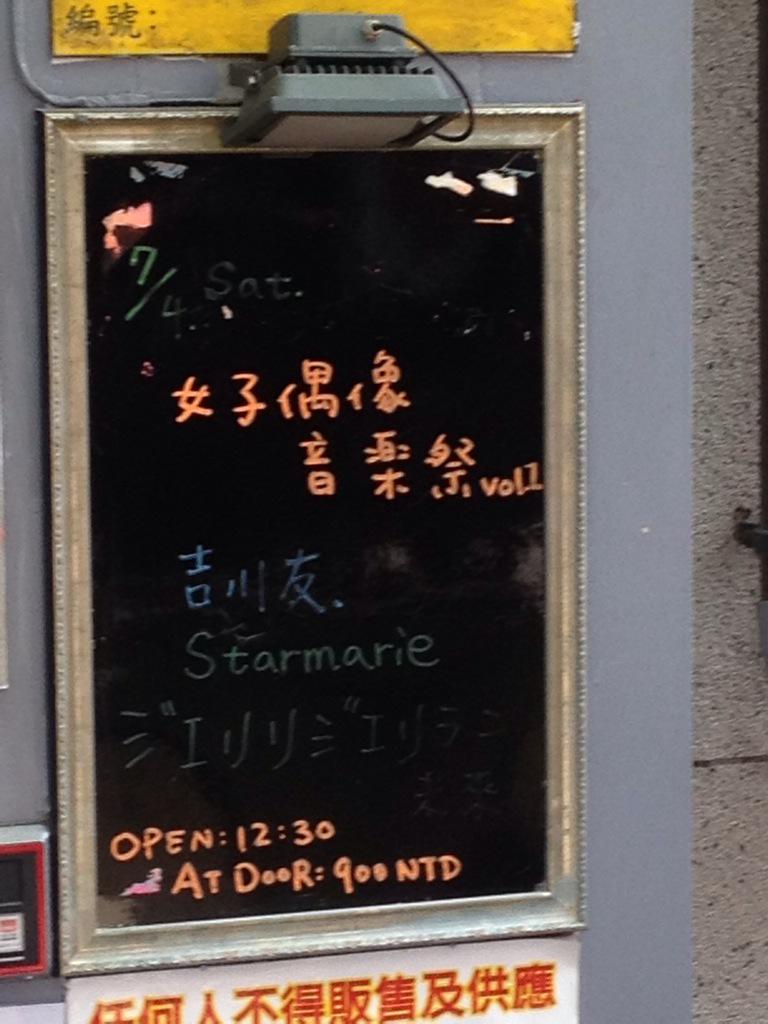 編號:
7/4. Sat.
女子偶像
音楽祭 vol1
吉川友.
Starmarie
ジエリリジエリラニ
未来
OPEN:12:30
AT DOOR: 900 NTD
任何人不得販售及供應